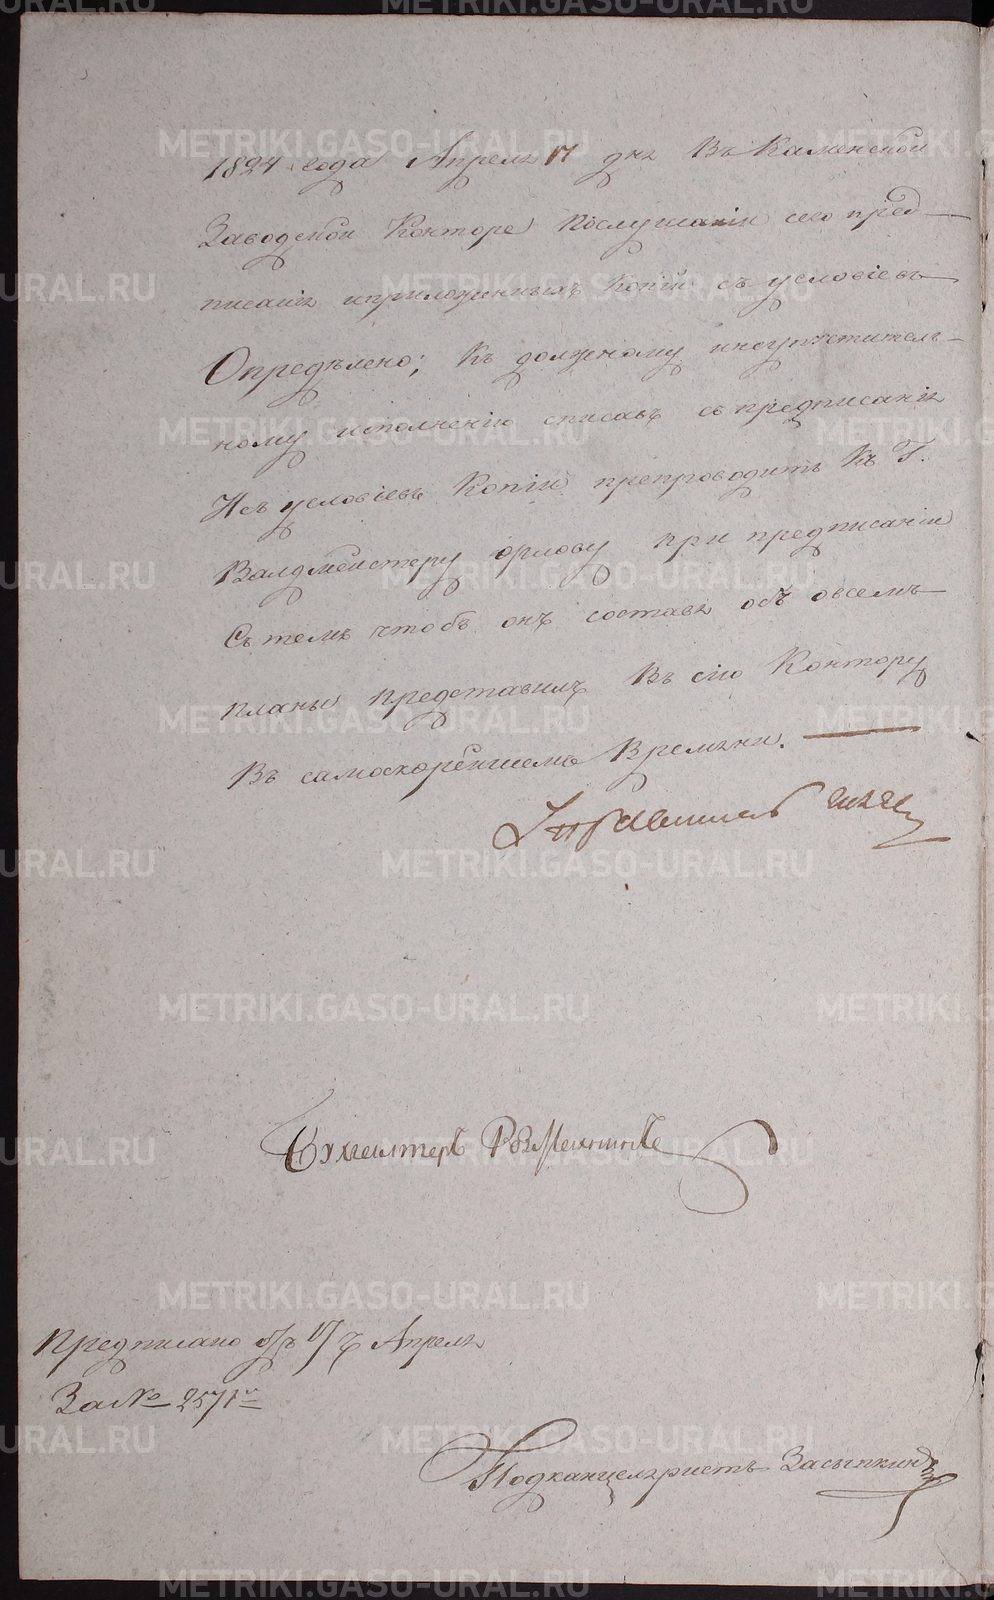 1824 года Апреля 17 дня Въ Каменской
Заводской Конторе Послушаніи сего пред-
писанія и приложенныхъ Копій съ условіевъ
Опредѣлено; Къ должному и неупуститель-
ному исполненію списавъ съ предписанія
И съ условіевъ Копіи препроводить Къ Г.
Валдмейстеру Орлову при предписаніи
Съ темъ чтобъ онъ составя объ овсемъ
планы представилъ Въ сію Контору
Въ самоскорейшемъ Времени.
Управитель
Бухгалтеръ
Предписано 17 Апреля
За № 2571
Подканцеляристъ Засыпкинъ
METRIKI.GASO-URAL.RU